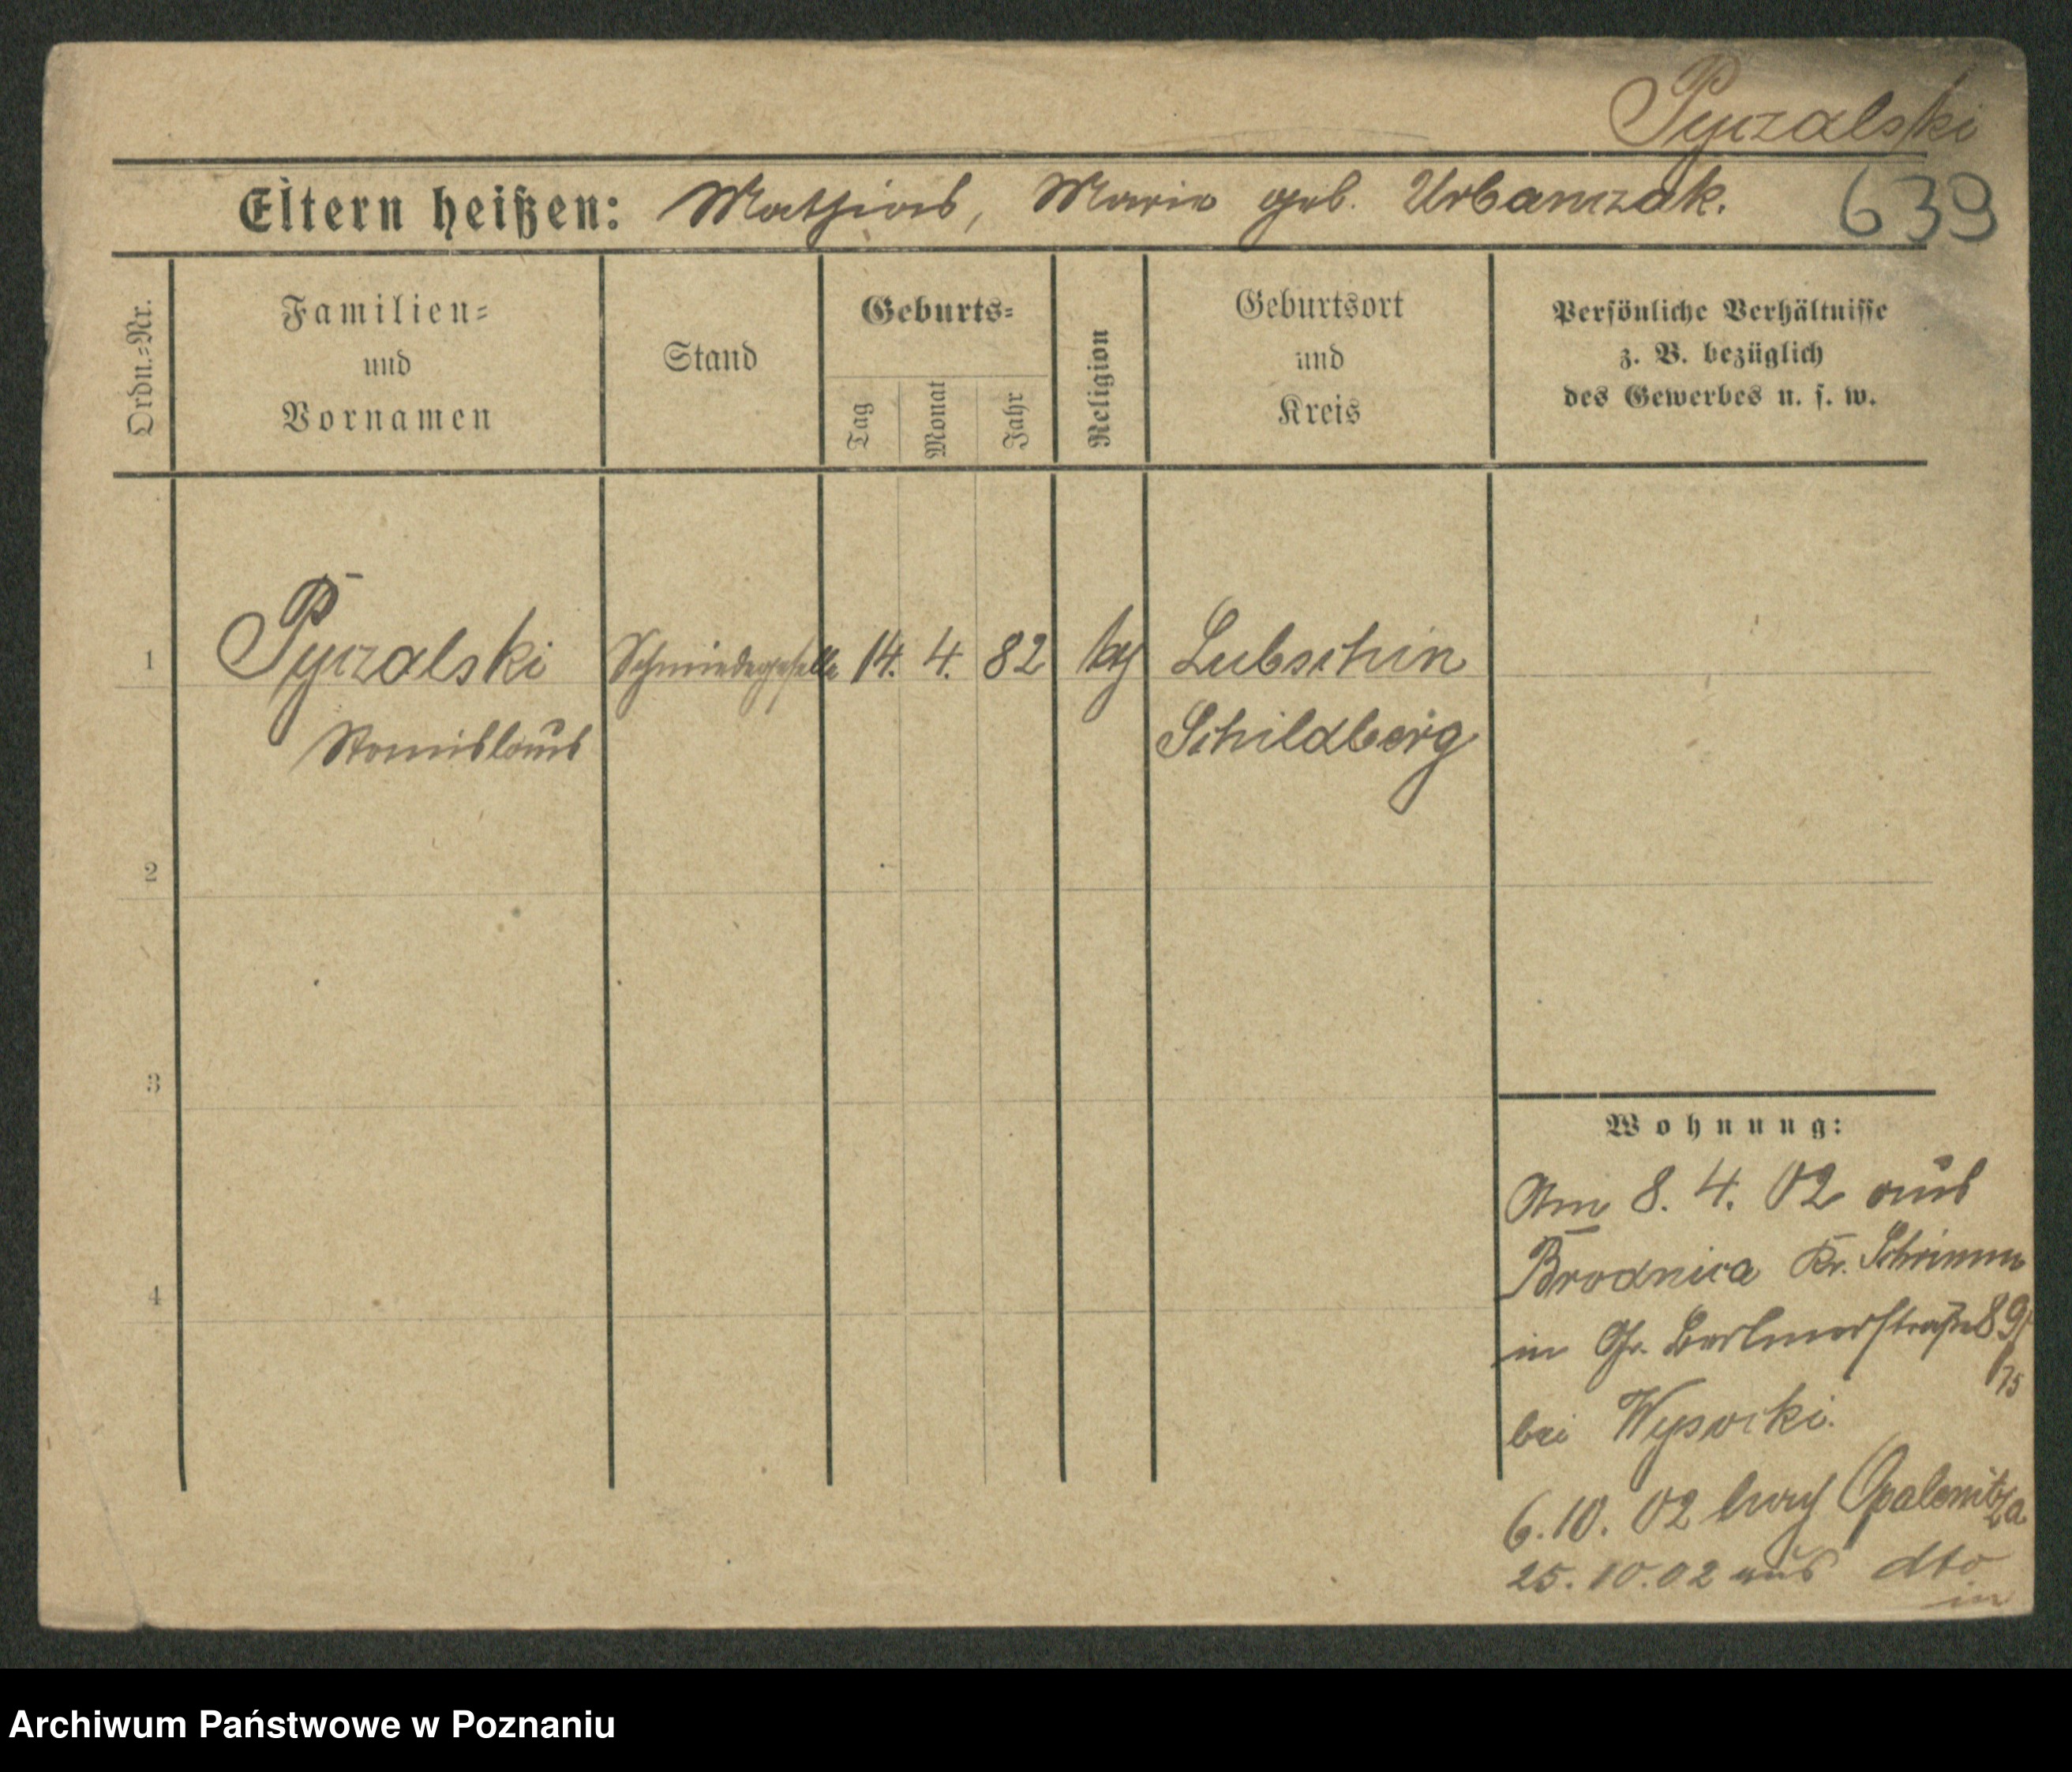 Pyczalski
Eltern heißen: Mathias, Marie geb. Urbanczak.
639
Ordn.=Nr.
Familien=
und
Vornamen
Stand
Geburts=
Tag
Monat
Jahr
Religion
Geburtsort
und
Kreis
Persönliche Verhältnisse
z. B. bezüglich
des Gewerbes u. s. w.
1
Pyczalski Schmiedegeselle 14. 4. 82 Lubschin
Stanislaus Schildberg
2
3
4
Wohnung:
Am 8. 4. 02 aus
Brodnica Kr. Schrimm
in Gr. Berlinerstraße 89/
75
bei Wysocki.
6. 10. 02 nach Opalenitza
25. 10. 02 aus dto
in
Archiwum Państwowe w Poznaniu